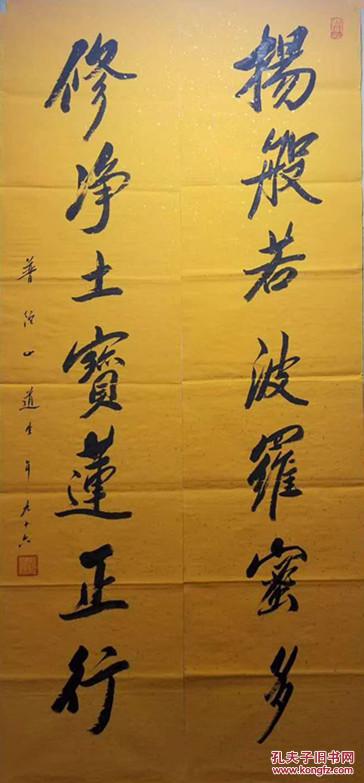 揚般若波羅蜜多
修净土寳蓮正行
普陀山道生年九十六
孔夫子旧书网
www.kongfz.com